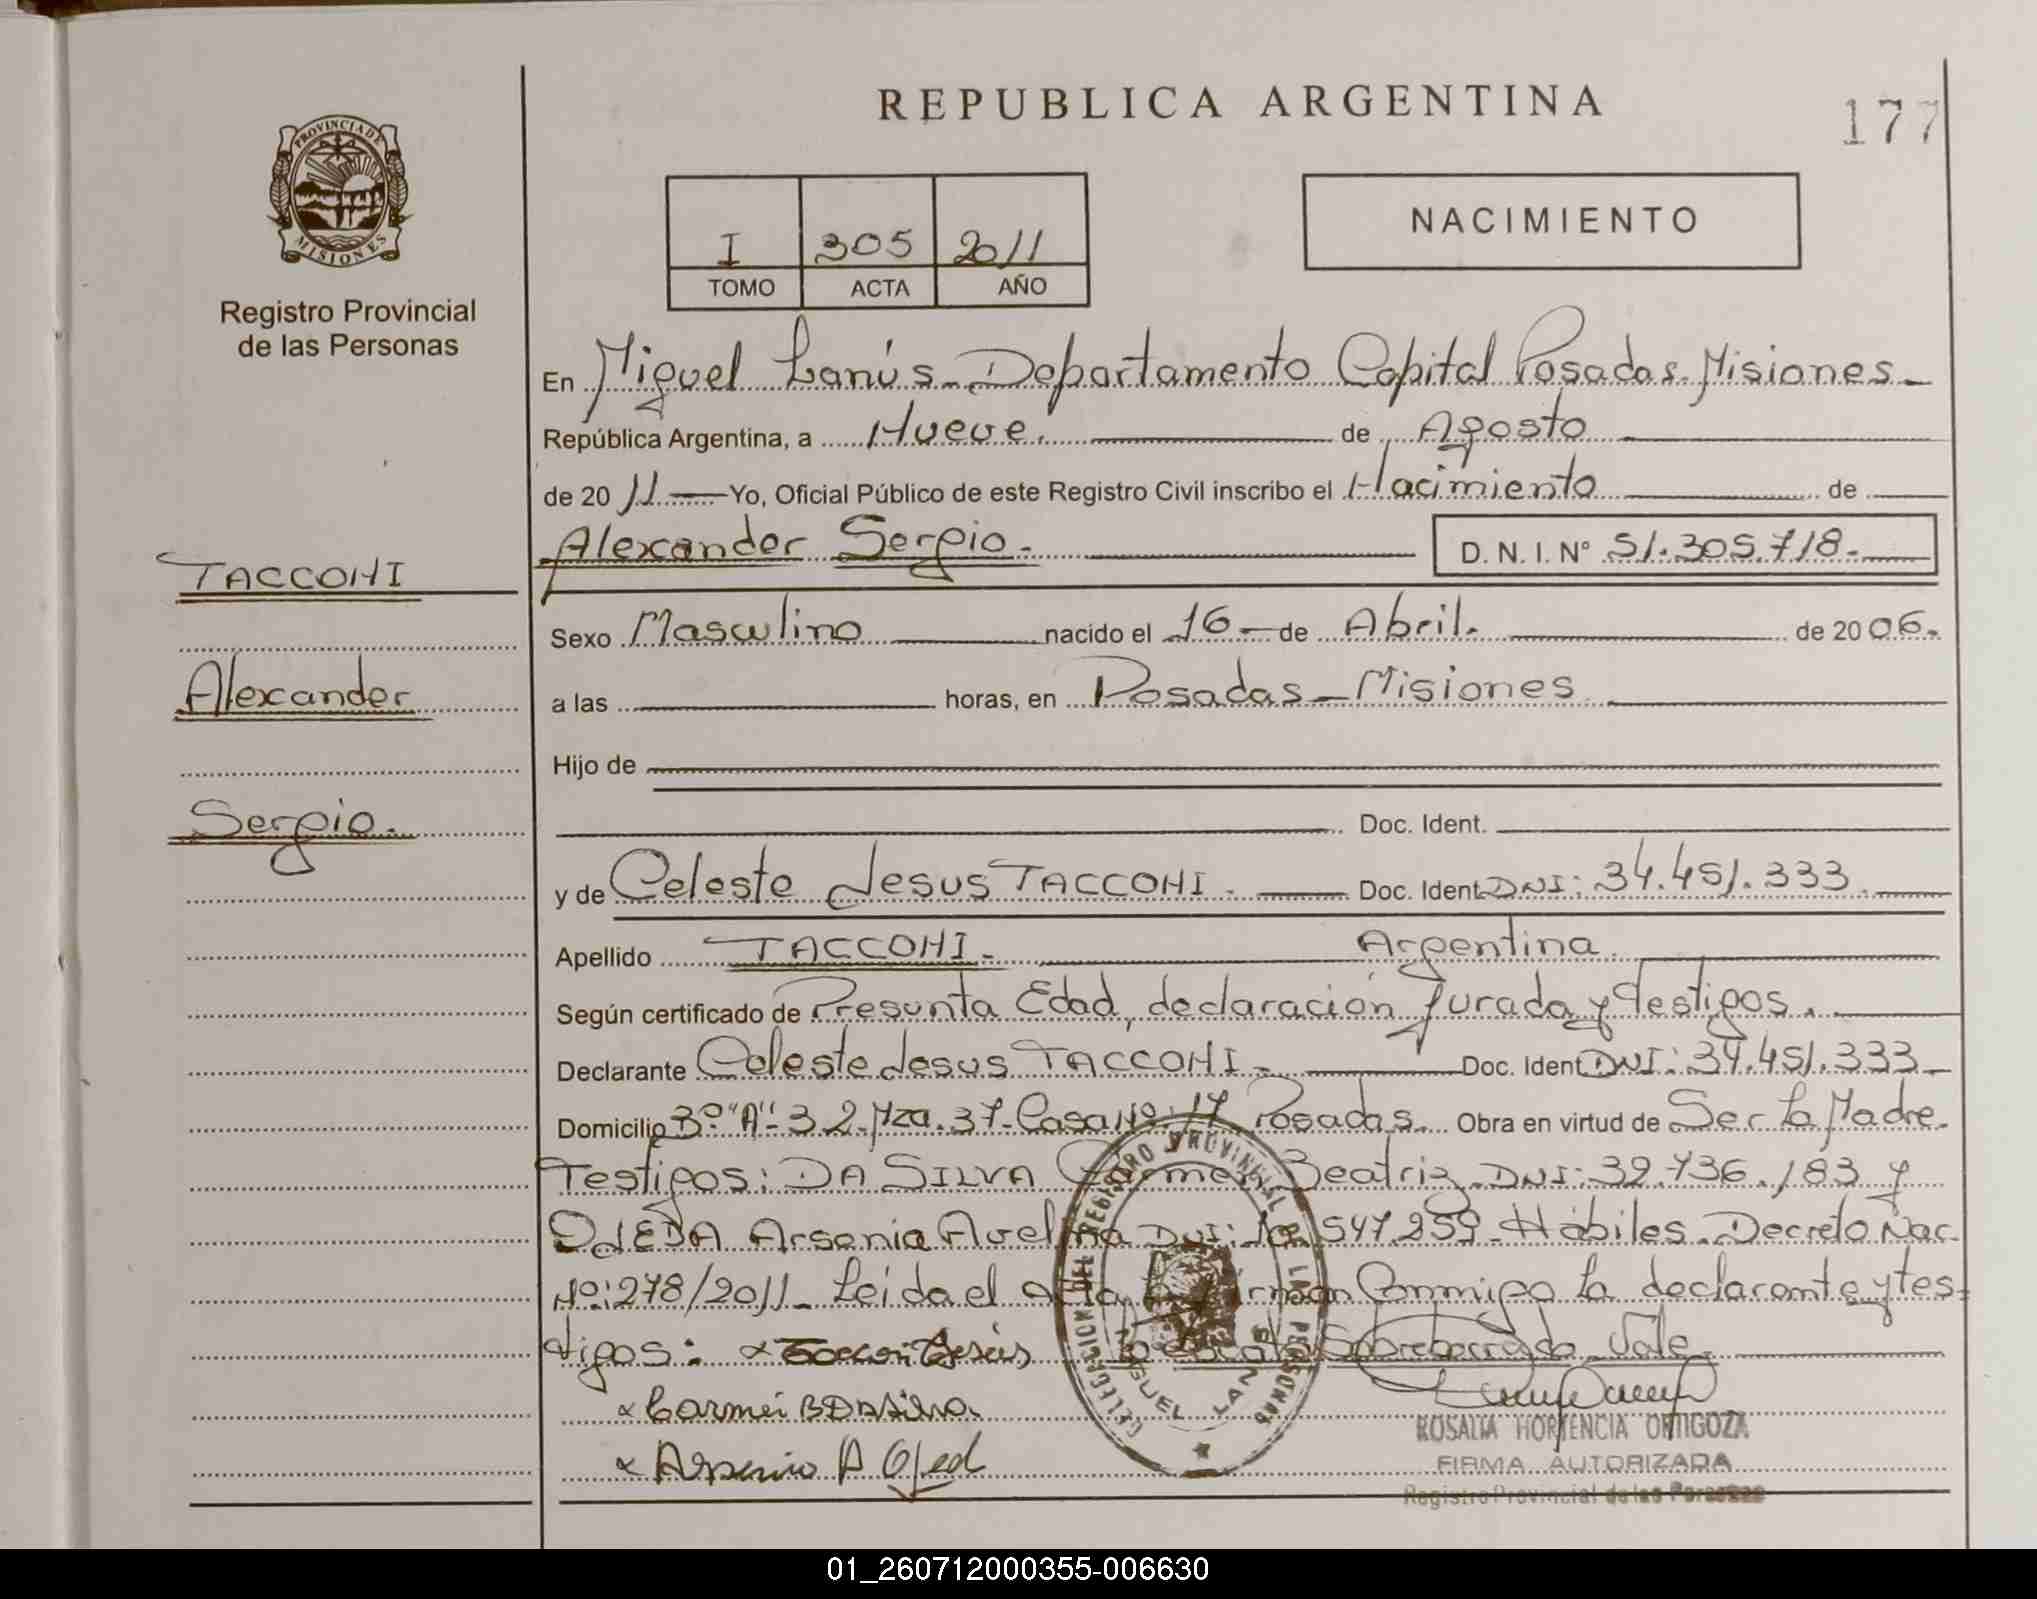 REPUBLICA ARGENTINA
177
PROVINCIA DE MISIONES
Registro Provincial
de las Personas
I 305 2011
TOMO ACTA AÑO
NACIMIENTO
En Miguel Lanús - Departamento Capital Posadas - Misiones -
República Argentina, a Nueve. de Agosto
de 2011 Yo, Oficial Público de este Registro Civil inscribo el Nacimiento de
Alexander Sergio. D. N. I. Nº 51.305.718.-
TACCONI
Alexander
Sergio.
Sexo Masculino nacido el 16 - de Abril. de 2006.
a las horas, en Posadas - Misiones
Hijo de
Doc. Ident.
y de Celeste Jesus TACCONI. Doc. Ident. DNI: 34.451.333.
Apellido TACCONI. Argentina.
Según certificado de Presunta Edad, declaración Jurada y Testigos.
Declarante Celeste Jesus TACCONI. Doc. Ident. DNI: 34.451.333
Domicilio 3º "A" - 32 - Mza. 37 - Casa Nº: 17 Posadas. Obra en virtud de Ser La Madre.
Testigos: DA SILVA Carmen Beatriz - DNI: 32.736.183 y
OJEDA Arsenia Avelina DNI: 547.259 - Hábiles. Decreto Nac.
Nº: 278/2011 - Leida el acta firman Conmigo La declarante y tes-
tigos: x Tacconi Jesús Sobreborrado Vale.
x Carmen B DA Silva.
x Arsenia A Ojed
DELEGACION DEL REGISTRO PROVINCIAL DE LAS PERSONAS
MIGUEL LANUS
ROSALIA HORTENCIA ORTIGOZA
FIRMA AUTORIZADA
Registro Provincial de las Personas
01_260712000355-006630